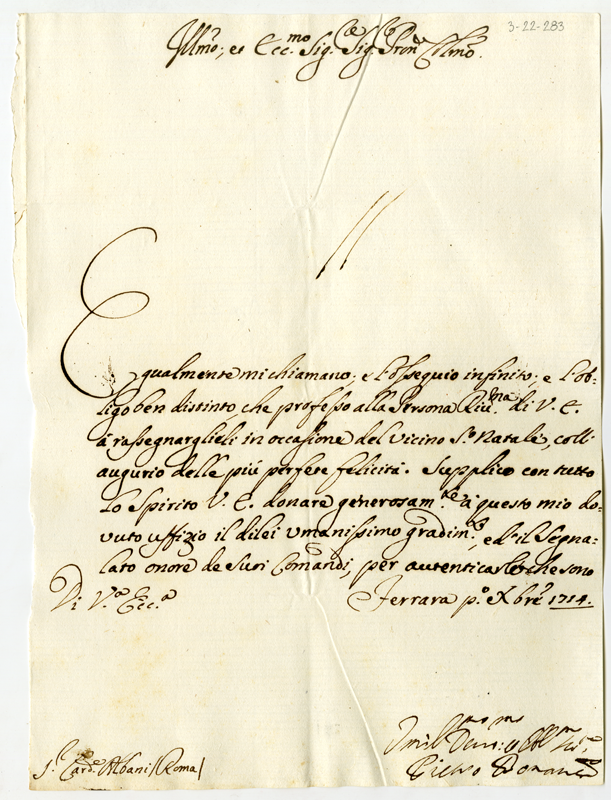 3-22-283
Illmo, et Ecc.mo Sig.re Sig.re Pron Colmo.
Egualmente mi chiamano, e l'ossequio infinito, e l'ob-
ligo ben distinto che professo alla Persona Riu.ma di V. E.
à rassegnarglieli in occasione del Vicino S.o Natale, coll'
augurio delle più perfete felicità. Supplico con tutto
Lo Spirito V. E. donare generosam.te à questo mio do-
vuto uffizio il di lei umanissimo gradim.to, ed il Segna-
lato onore de Suoi Comandi, per autenticarle che sono
Di V.a Ecc.a Ferrara p.o Xbre 1714.
S.r Card.e Albani / Roma /
Pietro